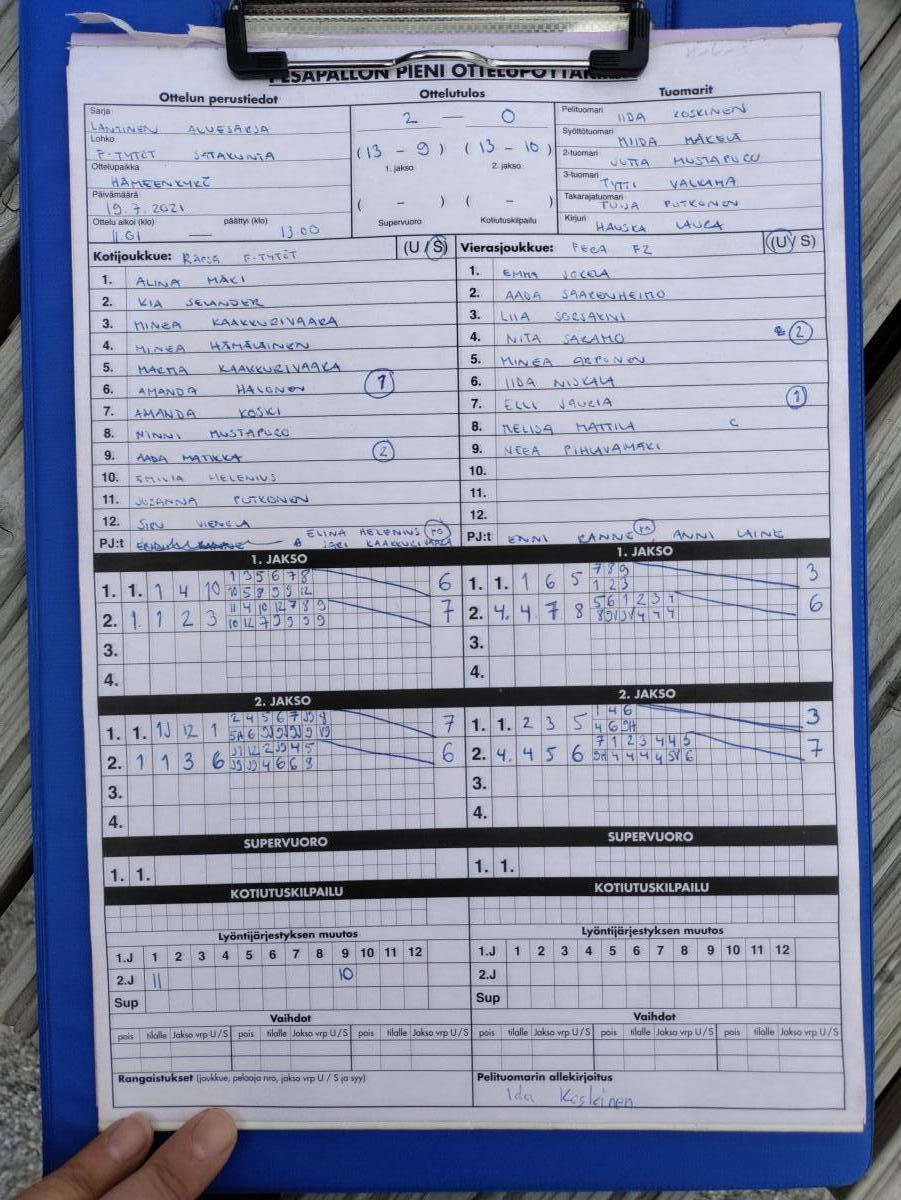 PESÄPALLON PIENI
Ottelun perustiedot
Ottelutulos
Tuomarit
Sarja
LÄNTINEN ALUESARJA
Lohko
F-TYTÖT SATAKUNTA
Ottelupaikka
HÄMEENKYRÖ
Päivämäärä
19.7.2021
Ottelu alkoi (klo) päättyi (klo)
11.01 — 13.00
2 — 0
(13 - 9) (13 - 10)
1. jakso 2. jakso
( - ) ( - )
Supervuoro Kotiutuskilpailu
Pelituomari IIDA KOSKINEN
Syöttötuomari MIIDA MÄKELÄ
2-tuomari JUTTA MUSTAPURO
3-tuomari TYTTI VALKAMA
Takarajatuomari TUIJA PUTKONEN
Kirjuri HAUSKA LAURA
Kotijoukkue: RÄPSÄ F-TYTÖT (U / S)
1. ALINA MÄKI
2. KIA SELANDER
3. MINEA KAAKKURIVAARA
4. MINEA HÄMÄLÄINEN
5. MARMA KAAKKURIVAARA
6. AMANDA HALONEN 1
7. AMANDA KOSKI
8. NINNI MUSTAPURO
9. AADA MATIKKA 2
10. EMILIA HELENIUS
11. JUSANNA PUTKONEN
12. SIRU VIENOLA
PJ:t ELINA HELENIUS JARI KAAKKURIVAARA
Vierasjoukkue: PECA F2 (U / S)
1. EMMA JOKELA
2. AADA SAARENHEIMO
3. LIIA SORJAKIVI
4. NITA SARAMO 2
5. MINEA ARPONEN
6. IIDA NISKALA
7. ELLI JAURIA 1
8. MELISA MATTILA C
9. NEEA PIHLAVAMÄKI
10.
11.
12.
PJ:t ENNI RANNE ANNI LAINE
1. JAKSO
1. 1. 1 4 10 1 3 5 6 7 8 6
10 5 8 9 9 12
2. 1. 1 2 3 11 4 10 12 7 8 9 7
10 12 7 9 9 9 9
3.
4.
1. JAKSO
1. 1. 1 6 5 7 8 9 3
1 2 3
2. 4. 4 7 8 5 6 1 2 3 4 6
3.
4.
2. JAKSO
1. 1. 11 12 1 7
2. 1 1 3 6 6
3.
4.
2. JAKSO
1. 1. 2 3 5 1 4 6 3
2. 4. 4 5 6 7 1 2 3 4 4 5 7
3.
4.
SUPERVUORO
1. 1.
SUPERVUORO
1. 1.
KOTIUTUSKILPAILU
KOTIUTUSKILPAILU
Lyöntijärjestyksen muutos
1.J 1 2 3 4 5 6 7 8 9 10 11 12
2.J 11 10
Sup
Lyöntijärjestyksen muutos
1.J 1 2 3 4 5 6 7 8 9 10 11 12
2.J
Sup
Vaihdot
pois tilalle Jakso vrp U / S pois tilalle Jakso vrp U / S pois tilalle Jakso vrp U / S
Vaihdot
pois tilalle Jakso vrp U / S pois tilalle Jakso vrp U / S pois tilalle Jakso vrp U / S
Rangaistukset (joukkue, pelaaja nro, jakso vrp U / S ja syy)
Pelituomarin allekirjoitus
Iida Koskinen